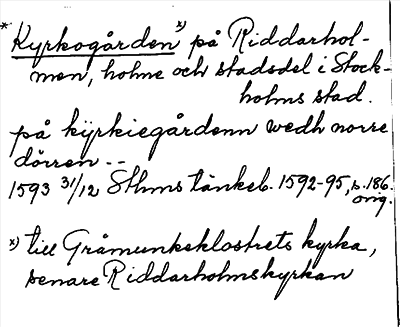 * Kyrkogården x) på Riddarhol-
men, holme och stadsdel i Stock-
holms stad.
på kÿrkiegårdenn wedh norre
dörren --
1593 31/12 Sthms tänkeb. 1592-95, s. 186.
orig.
x) till Gråmunkeklostrets kyrka,
senare Riddarholmskyrkan